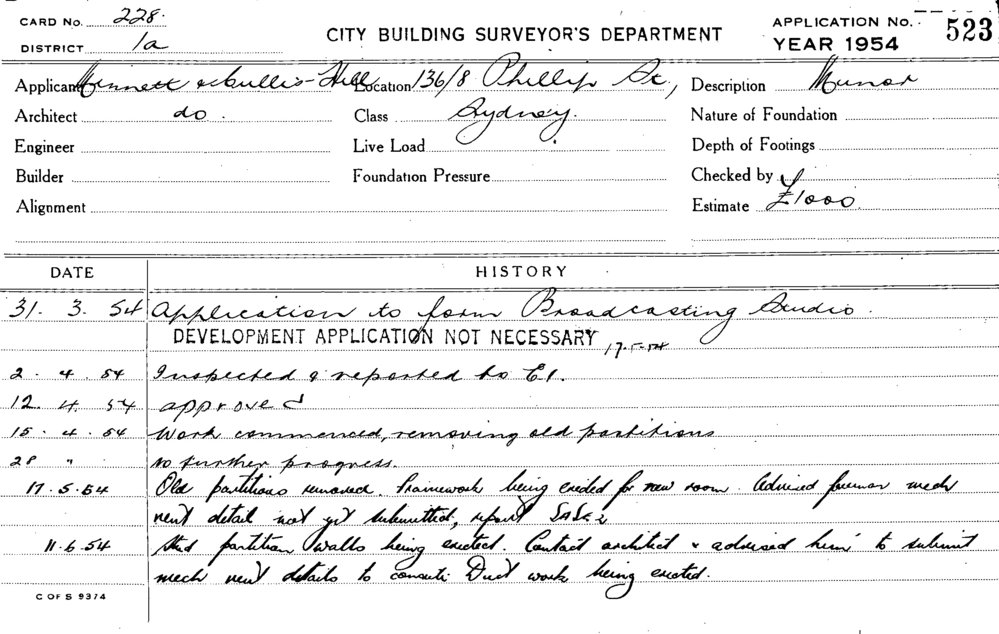 CARD No. 228.
DISTRICT 1a
CITY BUILDING SURVEYOR'S DEPARTMENT
APPLICATION No. 523
YEAR 1954
Applicant Minnett & Cullis-Hill Location 136/8 Phillip St, Description Minor
Architect do. Class Sydney. Nature of Foundation
Engineer Live Load Depth of Footings
Builder Foundation Pressure Checked by
Alignment Estimate £1000
DATE HISTORY
31. 3. 54 Application to form Broadcasting Studio.
DEVELOPMENT APPLICATION NOT NECESSARY 17-5-54
2. 4. 54 Inspected & reported to
12. 4. 54 approved
15. 4. 54 Work commenced, removing old partitions
28 " No further progress.
17.5.54 Old partitions removed. Framework being erected for new room. Advised foreman mech
vent detail not yet submitted, report
11.6.54 Stud partition walls being erected. Contact architect & advised him to submit
mech vent details to Duct work being erected.
C OF S 9374